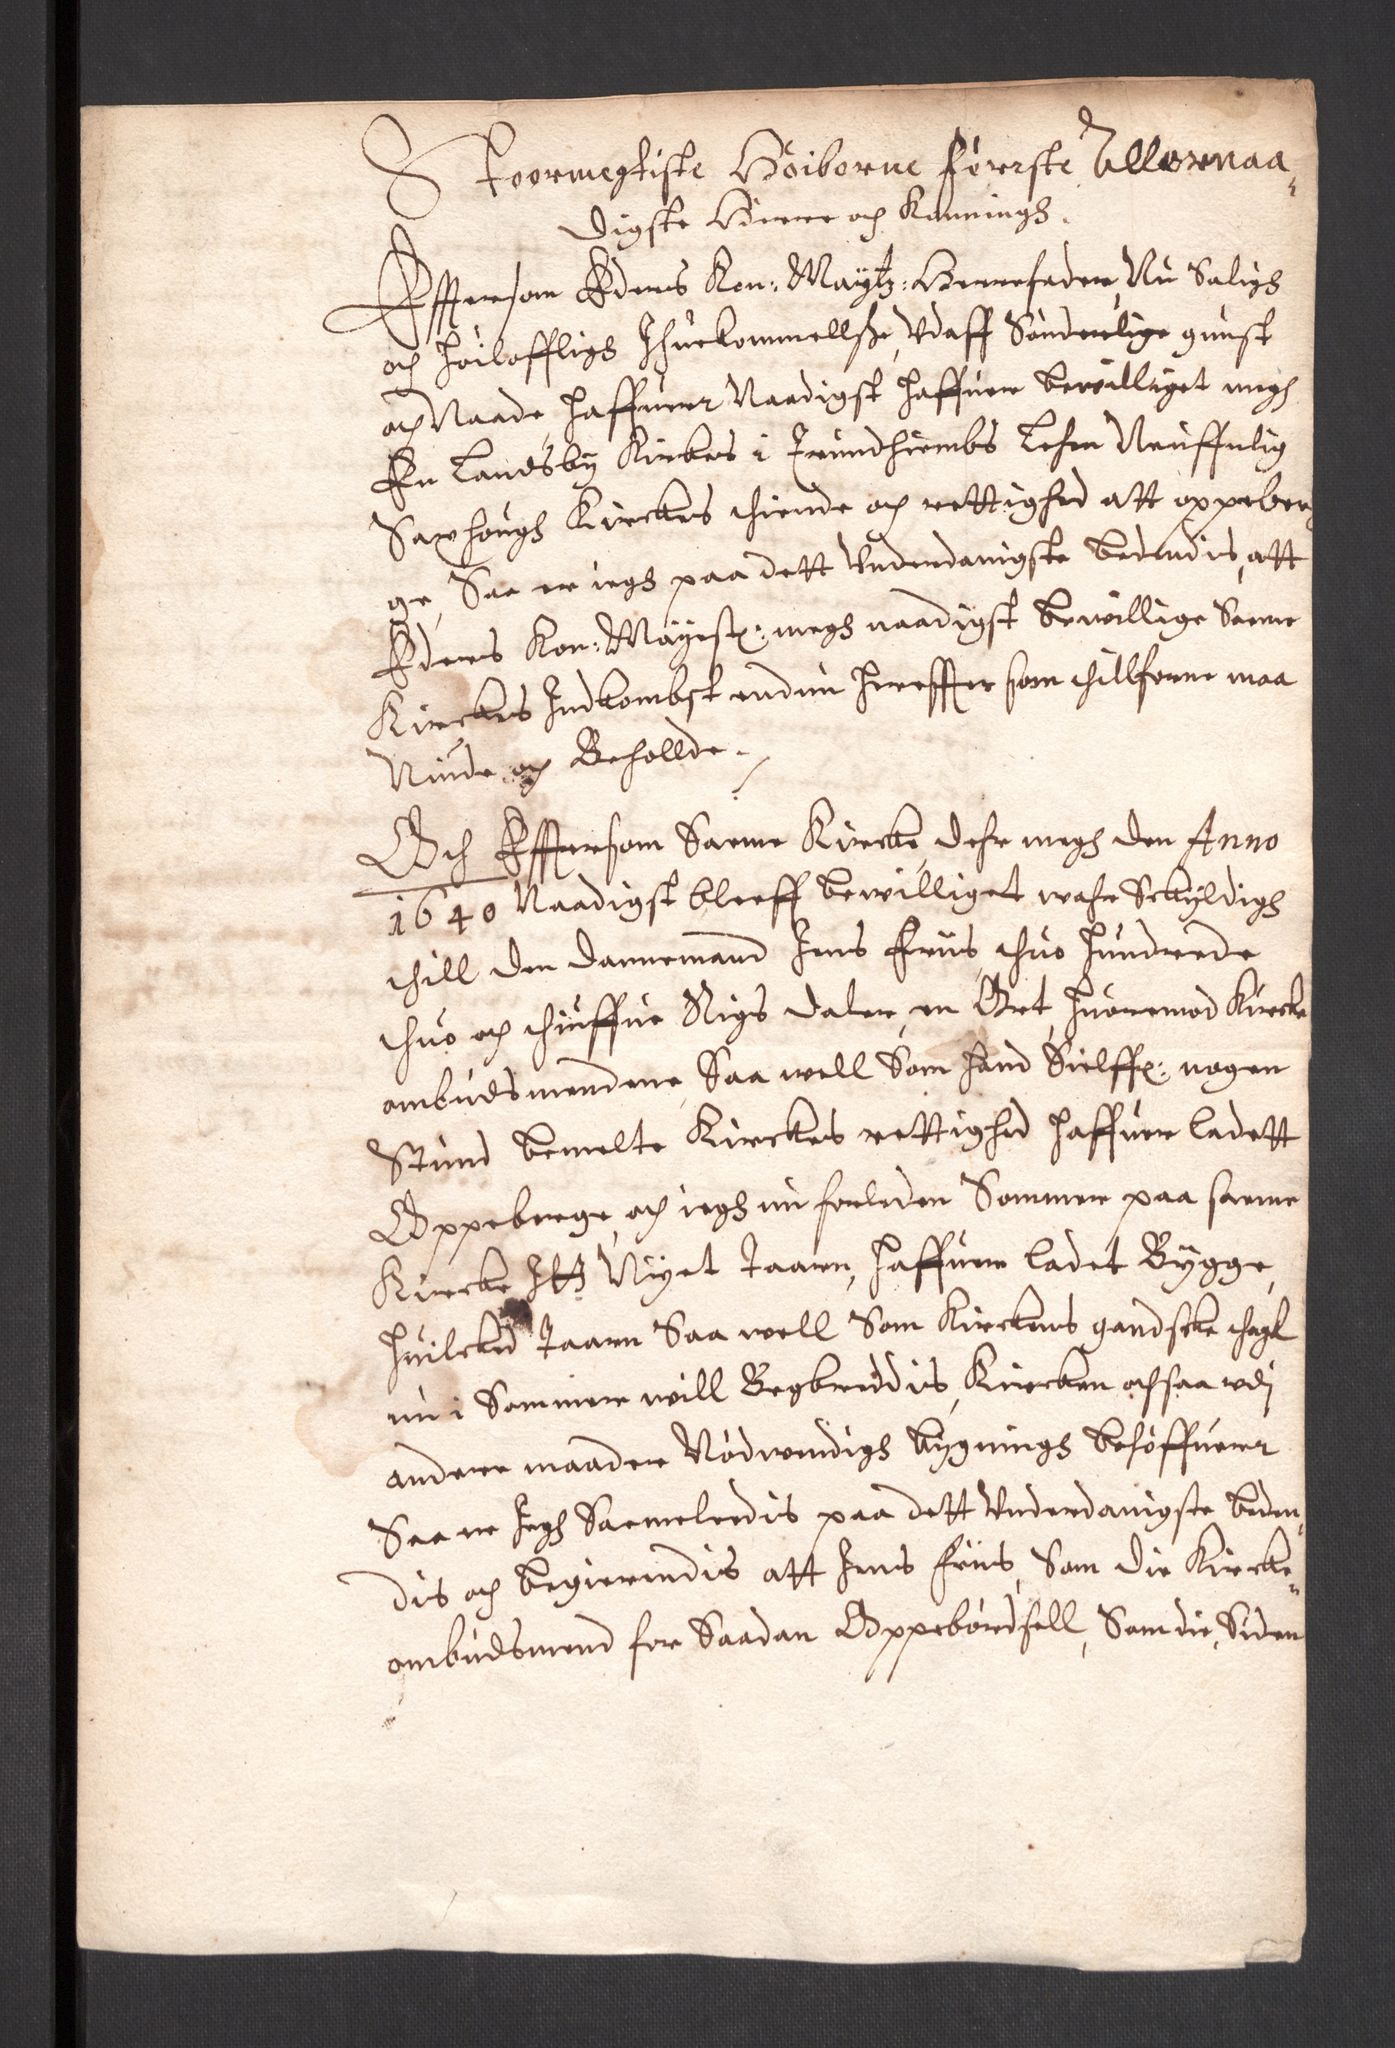 Stoormegtiste Höiborne Förrste Allernaa„
digste Herre och Konningh.
Effttersom Eders Kon: Maytz: Herrefader, Nu Saligh
och Höiloffligh Ihuekommellsse, Vdaff Sönderlige gunst
och Naade, Haffuer Naadigst Haffuer beuilliget megh
En Landsby Kirckes i Trundhiembs Lehn Neuffnlig
Saxhough Kirckes thiende och rettighed att oppeber„
ge, Saa er iegh paa dett Underdanigste bedendis, att
Eders Kon: Mayest: megh naadigst beuillige Samme
Kirckes Indkombst endnu Hereffter som thillforne maa
Niude och Beholde.
Och Effttersom Samme Kircke, dehr megh den Anno
1640 Naadigst bleeff beuilliget wahr Schyldigh
thill den dannemand Jens Friis, thuo Hundrede
thuo och thiuffue Rigs daler, en Ort, Huoremod Kircke
ombudsmendene, Saa well Som Hand Sielff: nogen
Stund bemelte Kirckes rettighed Haffuer ladett
Oppeberge, och iegh nu forleden Sommer paa samme
Kircke Itt Nyet Taarn, Haffuer ladet Bygge,
Huilcked Taarn Saa well Som Kirckens gandske thagh
nu i Sommer will Begbreddis, Kircken ochsaa vdj
andere maader Nödwendigh bygningh behöffuerr
Saa er Iegh Sammeledis paa dett Underdanigste beden„
dis och begierendis att Jens Friis, Som die Kircke„
ombudsmend for Saadan Oppebördsell, Som die, Siden